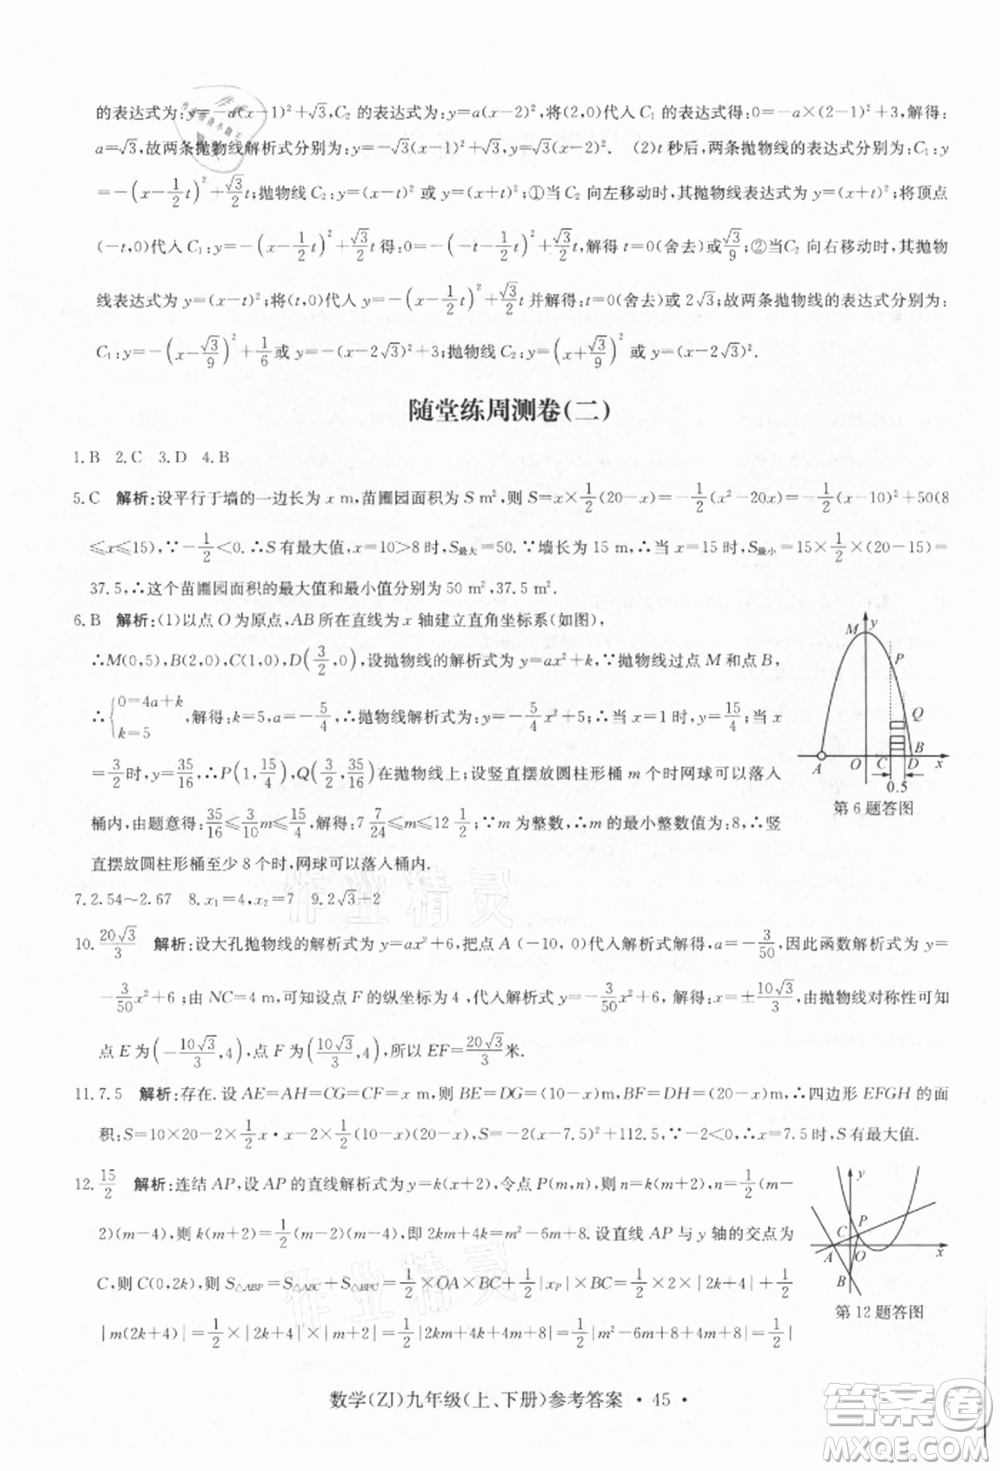 的表达式为:y=-a(x-1)²+√3,C₂的表达式为:y=a(x-2)²,将(2,0)代入C₁的表达式得:0=-a×(2-1)²+3,解得:
a=√3,故两条抛物线解析式分别为:y=-√3(x-1)²+√3,y=√3(x-2)². (2)t秒后,两条抛物线表达式分别为:C₁:y
=-(x-1/2 t)²+√3/2 t;抛物线C₂:y=(x-t)²或y=(x+t)²;①当C₂向左移动时,抛物线表达式为y=(x+t)²;将
(-t,0)代入C₁:y=-(x-1/2 t)²+√3/2 t得:0=-(x-1/2 t)²+√3/2 t,解得t=0(舍去)或√3/9;②当C₂向右移动时,抛物
线表达式为y=(x-t)²;将(t,0)代入y=-(x-1/2 t)²+√3/2 t并解得:t=0(舍去)或2√3,故两条抛物线的表达式分别为:
C₁:y=-(x-√3/9)²+1/6或y=-(x-√3)²+3;抛物线C₂:y=(x+√3/9)²或y=(x-2√3)².
随堂练周测卷(二)
1.B 2.C 3.D 4.B
5.C 解析:设平行于墙的一边长为x m,苗圃园面积为S m²,则S=x×1/2(20-x)=-1/2(x²-20x)=-1/2(x-10)²+50(8
≤x≤15),∵-1/2<0.∴S有最大值,x=10>8时,S最大=50.∵墙长为15 m,∴当x=15时,S最小,S最小=15×1/2×(20-15)=
37.5,∴这个苗圃园面积的最大值和最小值分别为50 m²,37.5 m².
6.B 解析:(1)以点O为原点,AB所在直线为x轴建立直角坐标系(如图),
∴M(0,5),B(2,0),C(1,0),D(3/2,0),设抛物线的解析式为y=ax²+k,∵抛物线过点M和点B,
∴{0=4a+k k=5,解得:k=5,a=-5/4,∴抛物线解析式为:y=-5/4x²+5;∴当x=1时,y=15/4;当x
=3/2时,y=35/16;∴P(1,15/4),Q(3/2,35/16)在抛物线上;设竖直摆放圆柱形桶m个时网球可以落入
桶内,由题意得:35/16≤3/10 m≤15/4;解得:7 7/24≤m≤12 1/2;∵m为整数,∴m的最小整数值为:8,∴竖
直摆放圆柱形桶至少8个时,网球可以落入桶内.
M
y
P
Q
A O C D B x
0.5
第6题答图
7.2.54～2.67 8.x₁=4,x₂=7 9.2√3-2
10.20√3/3 解析:设大孔抛物线的解析式为y=ax²+6,把点A(-10,0)代入解析式解得a=-3/50,因此函数解析式为y=
-3/50x²+6;由NC=4 m,可设点F的纵坐标为4,代入解析式y=-3/50x²+6,解得x=±10√3/3,由抛物线对称性可知
点E为(-10√3/3,4),点F为(10√3/3,4),所以EF=20√3/3米.
11.7.5 解析:存在.设AE=AH=CG=CF=x m,则BE=DG=(10-x)m,BF=DH=(20-x)m,∴四边形EFGH的面
积:S=10×20-2×1/2x·x-2×1/2(10-x)(20-x),S=-2(x-7.5)²+112.5,∵-2<0,∴x=7.5时,S有最大值.
12.15/2 解析:连结AP,设AP的直线解析式为y=k(x+2),令点P(m,n),则n=k(m+2)=1/2(m-
2)(m-4),∴k(m+2)=1/2(m-2)(m-4),∴2km+4k=m²-6m+8.设直线AP与y轴的交点为
C,则C(0,2k),∴S△ABP=S△ABC+S△BPC=1/2×OA×BC+1/2|m×BC|=1/2×2×|2k+4|+1/2×
|m(2k+4)|=1/2×|2k+4|×|m+2|=1/2×|m(2k+4)+2(2k+4)|=1/2×|2km+4m+4k+8|=1/2×|
y
C P
A O x
B
第12题答图
数学(ZJ)九年级(上、下册)参考答案 · 45 ·
作业精灵
作业精灵
答案圈
MXQE.COM